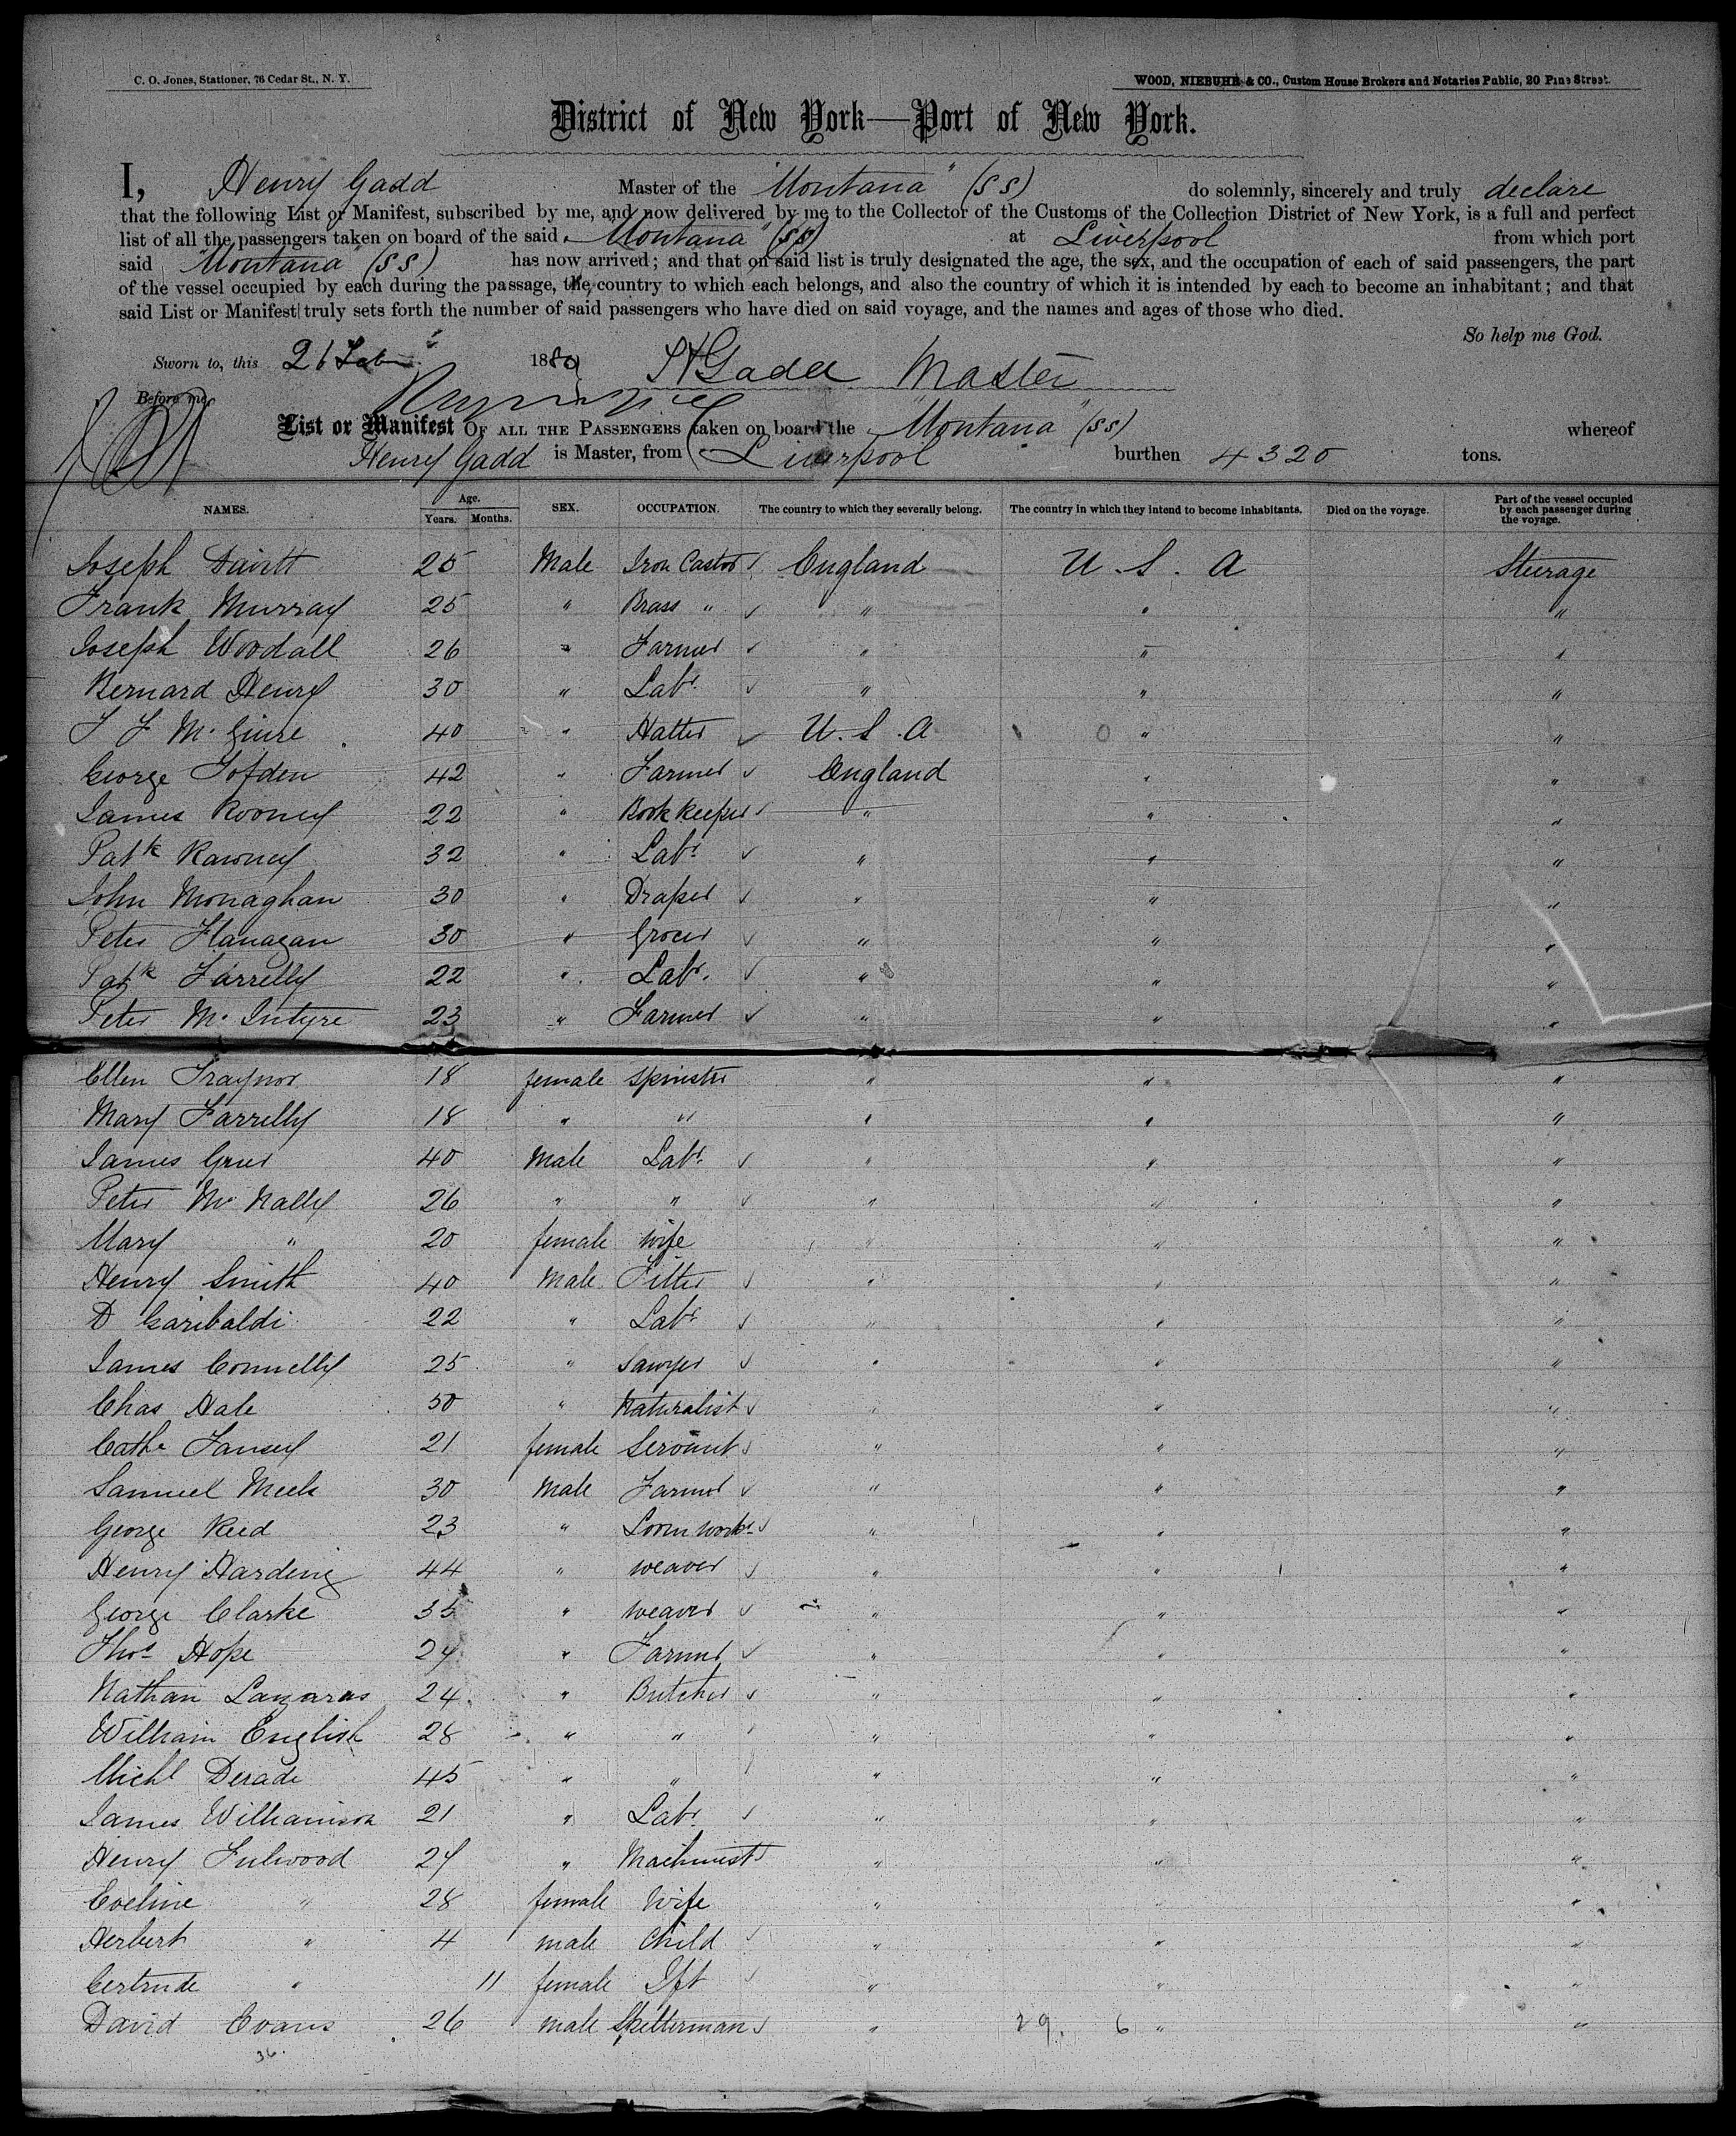 C. O. Jones, Stationer, 76 Cedar St., N. Y.
WOOD, NIEBUHR & CO., Custom House Brokers and Notaries Public, 20 Pine Street.
District of New York—Port of New York.
I, Henry Gadd Master of the "Montana" (SS) do solemnly, sincerely and truly declare
that the following List or Manifest, subscribed by me, and now delivered by me to the Collector of the Customs of the Collection District of New York, is a full and perfect
list of all the passengers taken on board of the said "Montana" (SS) at Liverpool from which port
said "Montana" (SS) has now arrived; and that on said list is truly designated the age, the sex, and the occupation of each of said passengers, the part
of the vessel occupied by each during the passage, the country to which each belongs, and also the country of which it is intended by each to become an inhabitant; and that
said List or Manifest truly sets forth the number of said passengers who have died on said voyage, and the names and ages of those who died.
So help me God.
Sworn to, this 26 Feb 1880 HGadd Master
Before me,
List or Manifest OF ALL THE PASSENGERS taken on board the "Montana" (SS) whereof
Henry Gadd is Master, from Liverpool burthen 4320 tons.
NAMES. Age. Years. Months. SEX. OCCUPATION. The country to which they severally belong. The country in which they intend to become inhabitants. Died on the voyage. Part of the vessel occupied by each passenger during the voyage.
Joseph Davitt 25 Male Iron Castor England U. S. A Steerage
Frank Murray 25 " Brass " " " "
Joseph Woodall 26 " Farmer " " "
Bernard Henry 30 " Labr " " "
40 " Hatter U. S. A " "
George 42 " Farmer England " "
James Rooney 22 " Bookkeeper " " "
Patk Rawney 32 " Labr " " "
John Monaghan 30 " Draper " " "
Peter Flanagan 30 " Grocer " " "
Patk Farrelly 22 " Labr. " " "
Peter McIntyre 23 " Farmer " " "
Ellen Traynor 18 female Spinster " " "
Mary Farrelly 18 " " " " "
James Grier 40 Male Labr " " "
Peter McNally 26 " " " " "
Mary " 20 female wife " " "
Henry Smith 40 Male Fitter " " "
D Garibaldi 22 " Labr " " "
James Connelly 25 " Sawyer " " "
Chas Hale 50 " Naturalist " " "
Cathe 21 female Servant " " "
Samuel Meek 30 Male Farmer " " "
George Reed 23 " Loom Workr " " "
Henry Harding 44 " weaver " " "
George Clarke 35 " weaver " " "
Thos Hope 24 " Farmer " " "
Nathan Lazarus 24 " Butcher " " "
William English 28 " " " " "
Michl Derade 45 " " " " "
James Williamson 21 " Labr " " "
Henry Fulwood 27 " Machinist " " "
Eveline " 28 female Wife " " "
Herbert " 4 male Child " " "
Gertrude " 11 female Ift " " "
David Evans 26 male Spelterman " 29. 6 " "
36.